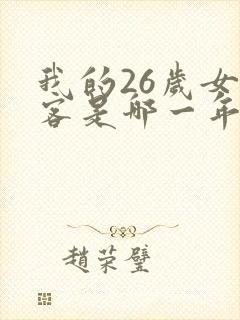 我的26歲女
客是哪一年
趙榮璧